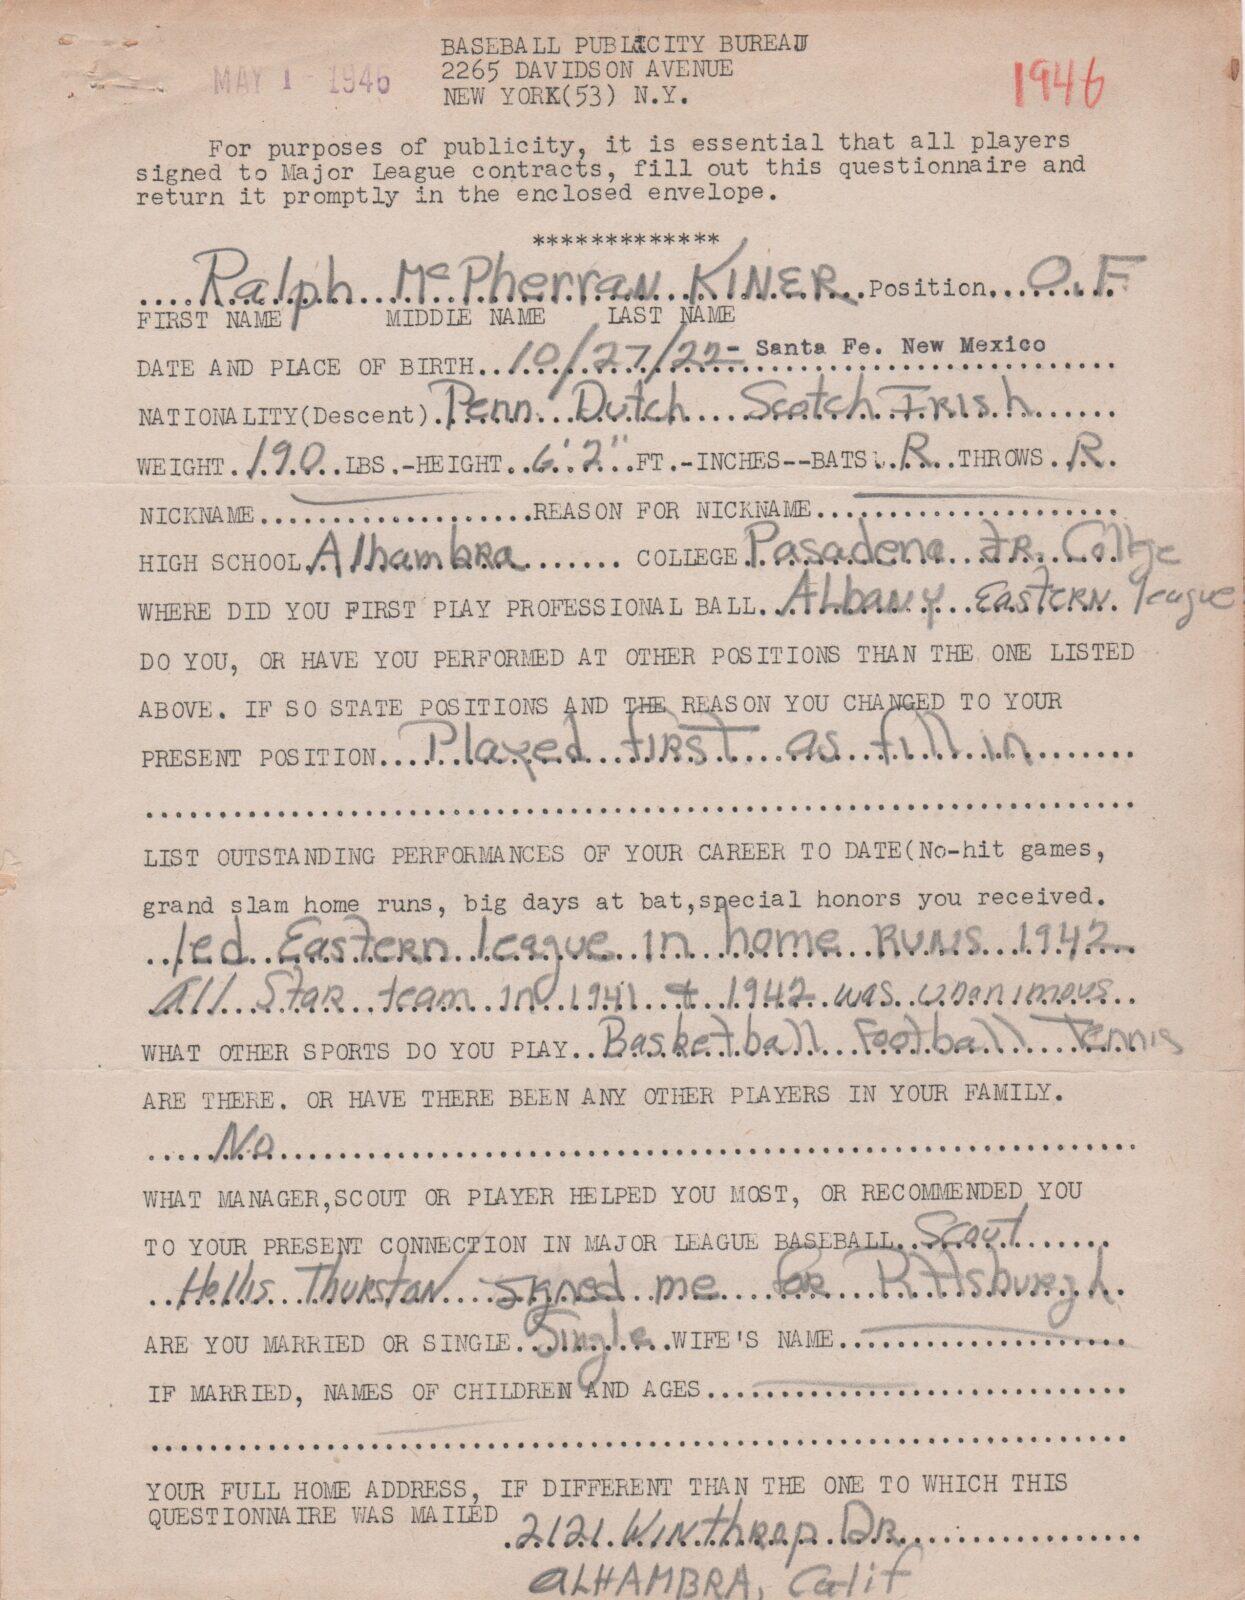 BASEBALL PUBLICITY BUREAU
MAY 1 - 1946
2265 DAVIDSON AVENUE
1946
NEW YORK(53) N.Y.
For purposes of publicity, it is essential that all players
signed to Major League contracts, fill out this questionnaire and
return it promptly in the enclosed envelope.
*************
Ralph McPherran KINER Position O.F
FIRST NAME MIDDLE NAME LAST NAME
DATE AND PLACE OF BIRTH..10/27/22- Santa Fe. New Mexico
NATIONALITY(Descent).Penn. Dutch Scotch IRISH
WEIGHT.190.LBS.-HEIGHT..6'2"..FT.-INCHES--BATS..R..THROWS.R.
NICKNAME...................REASON FOR NICKNAME.....................
HIGH SCHOOL.Alhambra....... COLLEGE.Pasadena JR. College
WHERE DID YOU FIRST PLAY PROFESSIONAL BALL..Albany Eastern league
DO YOU, OR HAVE YOU PERFORMED AT OTHER POSITIONS THAN THE ONE LISTED
ABOVE. IF SO STATE POSITIONS AND THE REASON YOU CHANGED TO YOUR
PRESENT POSITION....Played first as fill in.......
LIST OUTSTANDING PERFORMANCES OF YOUR CAREER TO DATE(No-hit games,
grand slam home runs, big days at bat,special honors you received.
led Eastern league in home RUNS 1942
All Star team in 1941 & 1942 was unanimous
WHAT OTHER SPORTS DO YOU PLAY..Basketball Football Tennis
ARE THERE. OR HAVE THERE BEEN ANY OTHER PLAYERS IN YOUR FAMILY.
No
WHAT MANAGER,SCOUT OR PLAYER HELPED YOU MOST, OR RECOMMENDED YOU
TO YOUR PRESENT CONNECTION IN MAJOR LEAGUE BASEBALL..Scout.......
Hollis Thurstan signed me for Pittsburgh
ARE YOU MARRIED OR SINGLE..Single..WIFE'S NAME....................
IF MARRIED, NAMES OF CHILDREN AND AGES.............................
YOUR FULL HOME ADDRESS, IF DIFFERENT THAN THE ONE TO WHICH THIS
QUESTIONNAIRE WAS MAILED
2121 Winthrop DR
ALHAMBRA, Calif